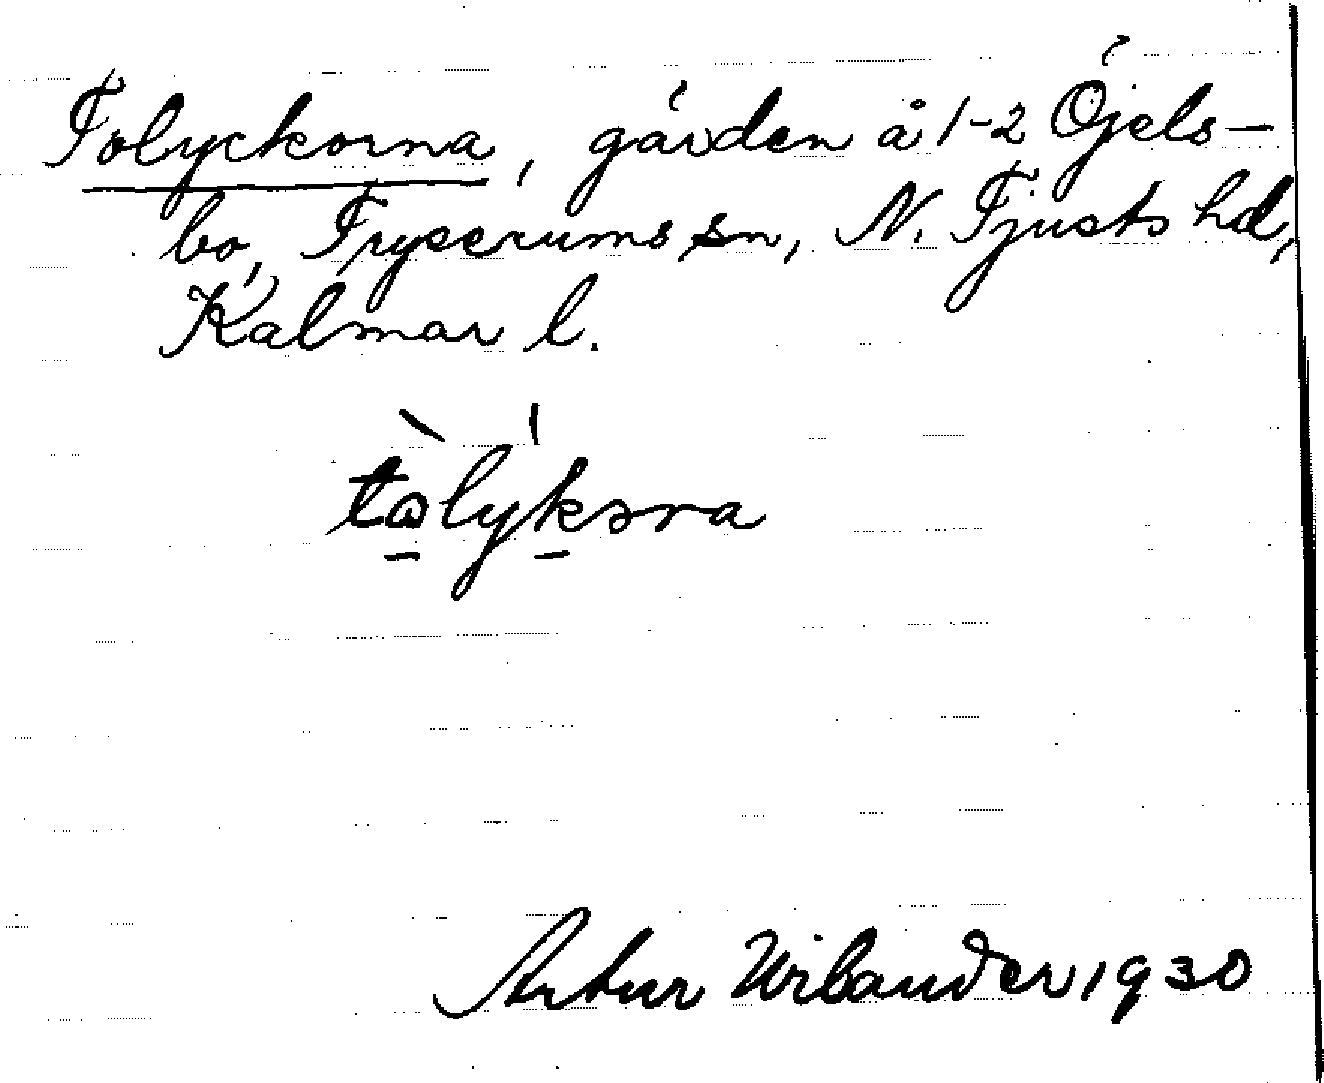 Tolyckorna, gärden å 1-2 Öjels-
bo, Tryserums sn, N. Tjusts hd,
Kalmar l.
Artur Wilander 1930